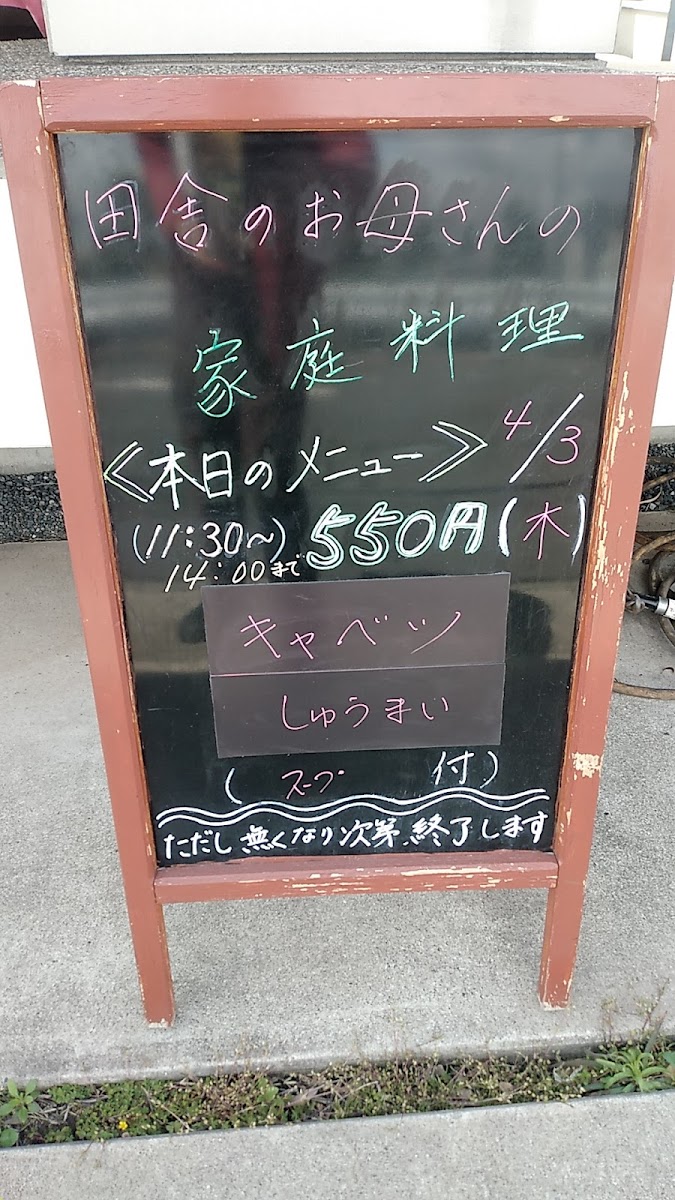 田舎のお母さんの
家庭料理
≪本日のメニュー≫ 4/3
(11:30〜) 550円(木)
14:00まで
キャベツ
しゅうまい
(スープ 付)
ただし無くなり次第終了します